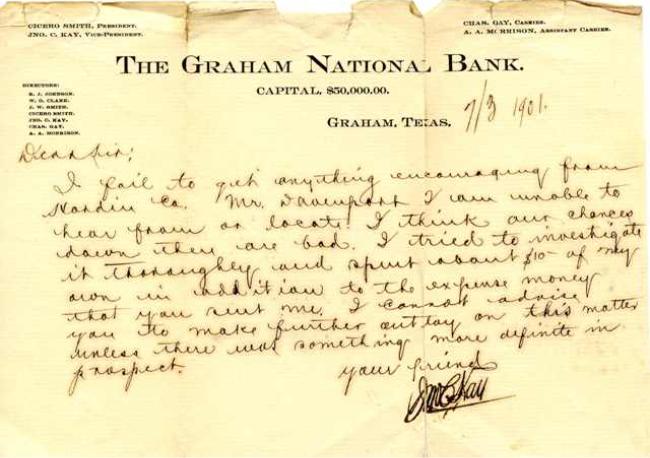 CICERO SMITH, PRESIDENT.
JNO. C. KAY, VICE-PRESIDENT.
CHAS. GAY, CASHIER.
A. A. MORRISON, ASSISTANT CASHIER.
THE GRAHAM NATIONAL BANK.
CAPITAL, $50,000.00.
DIRECTORS:
R. J. JOHNSON.
W. D. CLARK.
J. W. SMITH.
CICERO SMITH.
JNO. C. KAY.
CHAS. GAY.
A. A. MORRISON.
GRAHAM, TEXAS, 7/3 1901.
Dear Sir;
I fail to get anything encouraging from
Hardin Co. Mr. Davenport I am unable to
hear from or locate. I think our chances
down there are bad. I tried to investigate
it thoroughly and spent about $10- of my
own in addition to the expense money
that you sent me. I cannot advise
you to make further outlay on this matter
unless there was something more definite in
prospect.
your friend
Jno C Kay